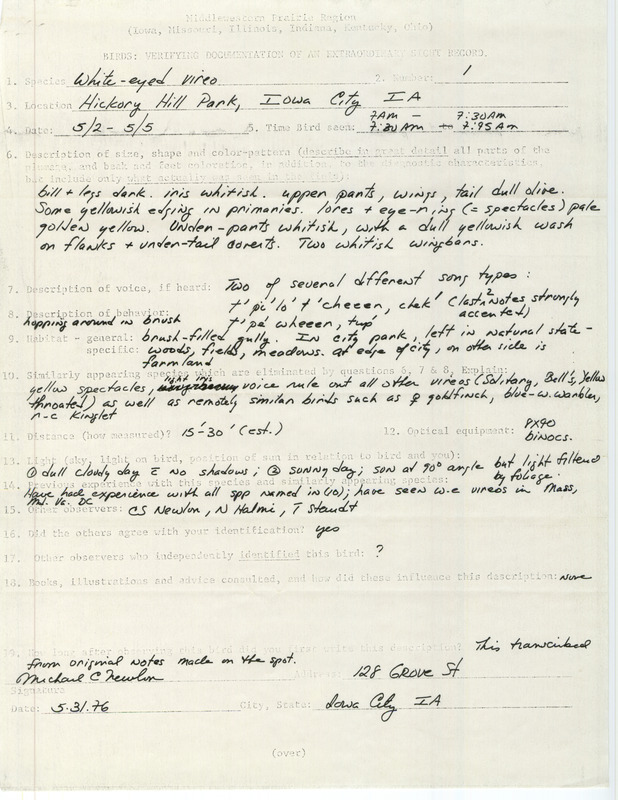 Middlewestern Prairie Region
(Iowa, Missouri, Illinois, Indiana, Kentucky, Ohio)
BIRDS: VERIFYING DOCUMENTATION OF AN EXTRAORDINARY SIGHT RECORD.
1. Species White-eyed vireo 2. Number: 1
3. Location Hickory Hill Park, Iowa City IA
7AM - 7:30AM
4. Date: 5/2 - 5/5 5. Time Bird seen: 7:30AM to 7:45Am
6. Description of size, shape and color-pattern (describe in great detail all parts of the
plumage, and beak and feet coloration. In addition, to the diagnostic characteristics,
but include only what actually was seen in the field):
bill + legs dark. iris whitish. upper parts, wings, tail dull olive.
Some yellowish edging in primaries. lores + eye-ring (= spectacles) pale
golden yellow. Under-parts whitish, with a dull yellowish wash
on flanks + under-tail coverts. Two whitish wingbars.
7. Description of voice, if heard: Two of several different song types:
t' pi' lo' t' cheeer, chek' (last 2 notes strongly accented)
8. Description of behavior:
hopping around in brush t' pe' wheeer, tup'
9. Habitat - general: brush-filled gully. In city park, left in natural state -
specific: woods, fields, meadows. at edge of city, on other side is
farmland
10. Similarly appearing species which are eliminated by questions 6, 7 & 8, Explain:
yellow spectacles, light iris voice rule out all other vireos (Solitary, Bell's, Yellow
throated) as well as remotely similar birds such as ♀ goldfinch, blue-w. warbler,
r-c kinglet
11. Distance (how measured)? 15'-30' (est.) 12. Optical equipment: 8X40
binocs.
13. Light (sky, light on bird, position of sun in relation to bird and you):
① dull cloudy day c̄ no shadows; ② sunny day; sun at 90° angle but light filtered
by foliage.
14. Previous experience with this species and similarly appearing species:
Have had experience with all spp named in (10); have seen w-e vireos in Mass,
Md, Va. DC
15. Other observers: CS Newlon, N Halmi, T Staudt
16. Did the others agree with your identification? yes
17. Other observers who independently identified this bird: ?
18. Books, illustrations and advice consulted, and how did these influence this description: none
19. How long after observing this bird did you first write this description? This transcribed
from original notes made on the spot.
Michael C Newlon Address: 128 Grove St
Signature
Date: 5.31.76 City, State: Iowa City IA
(over)